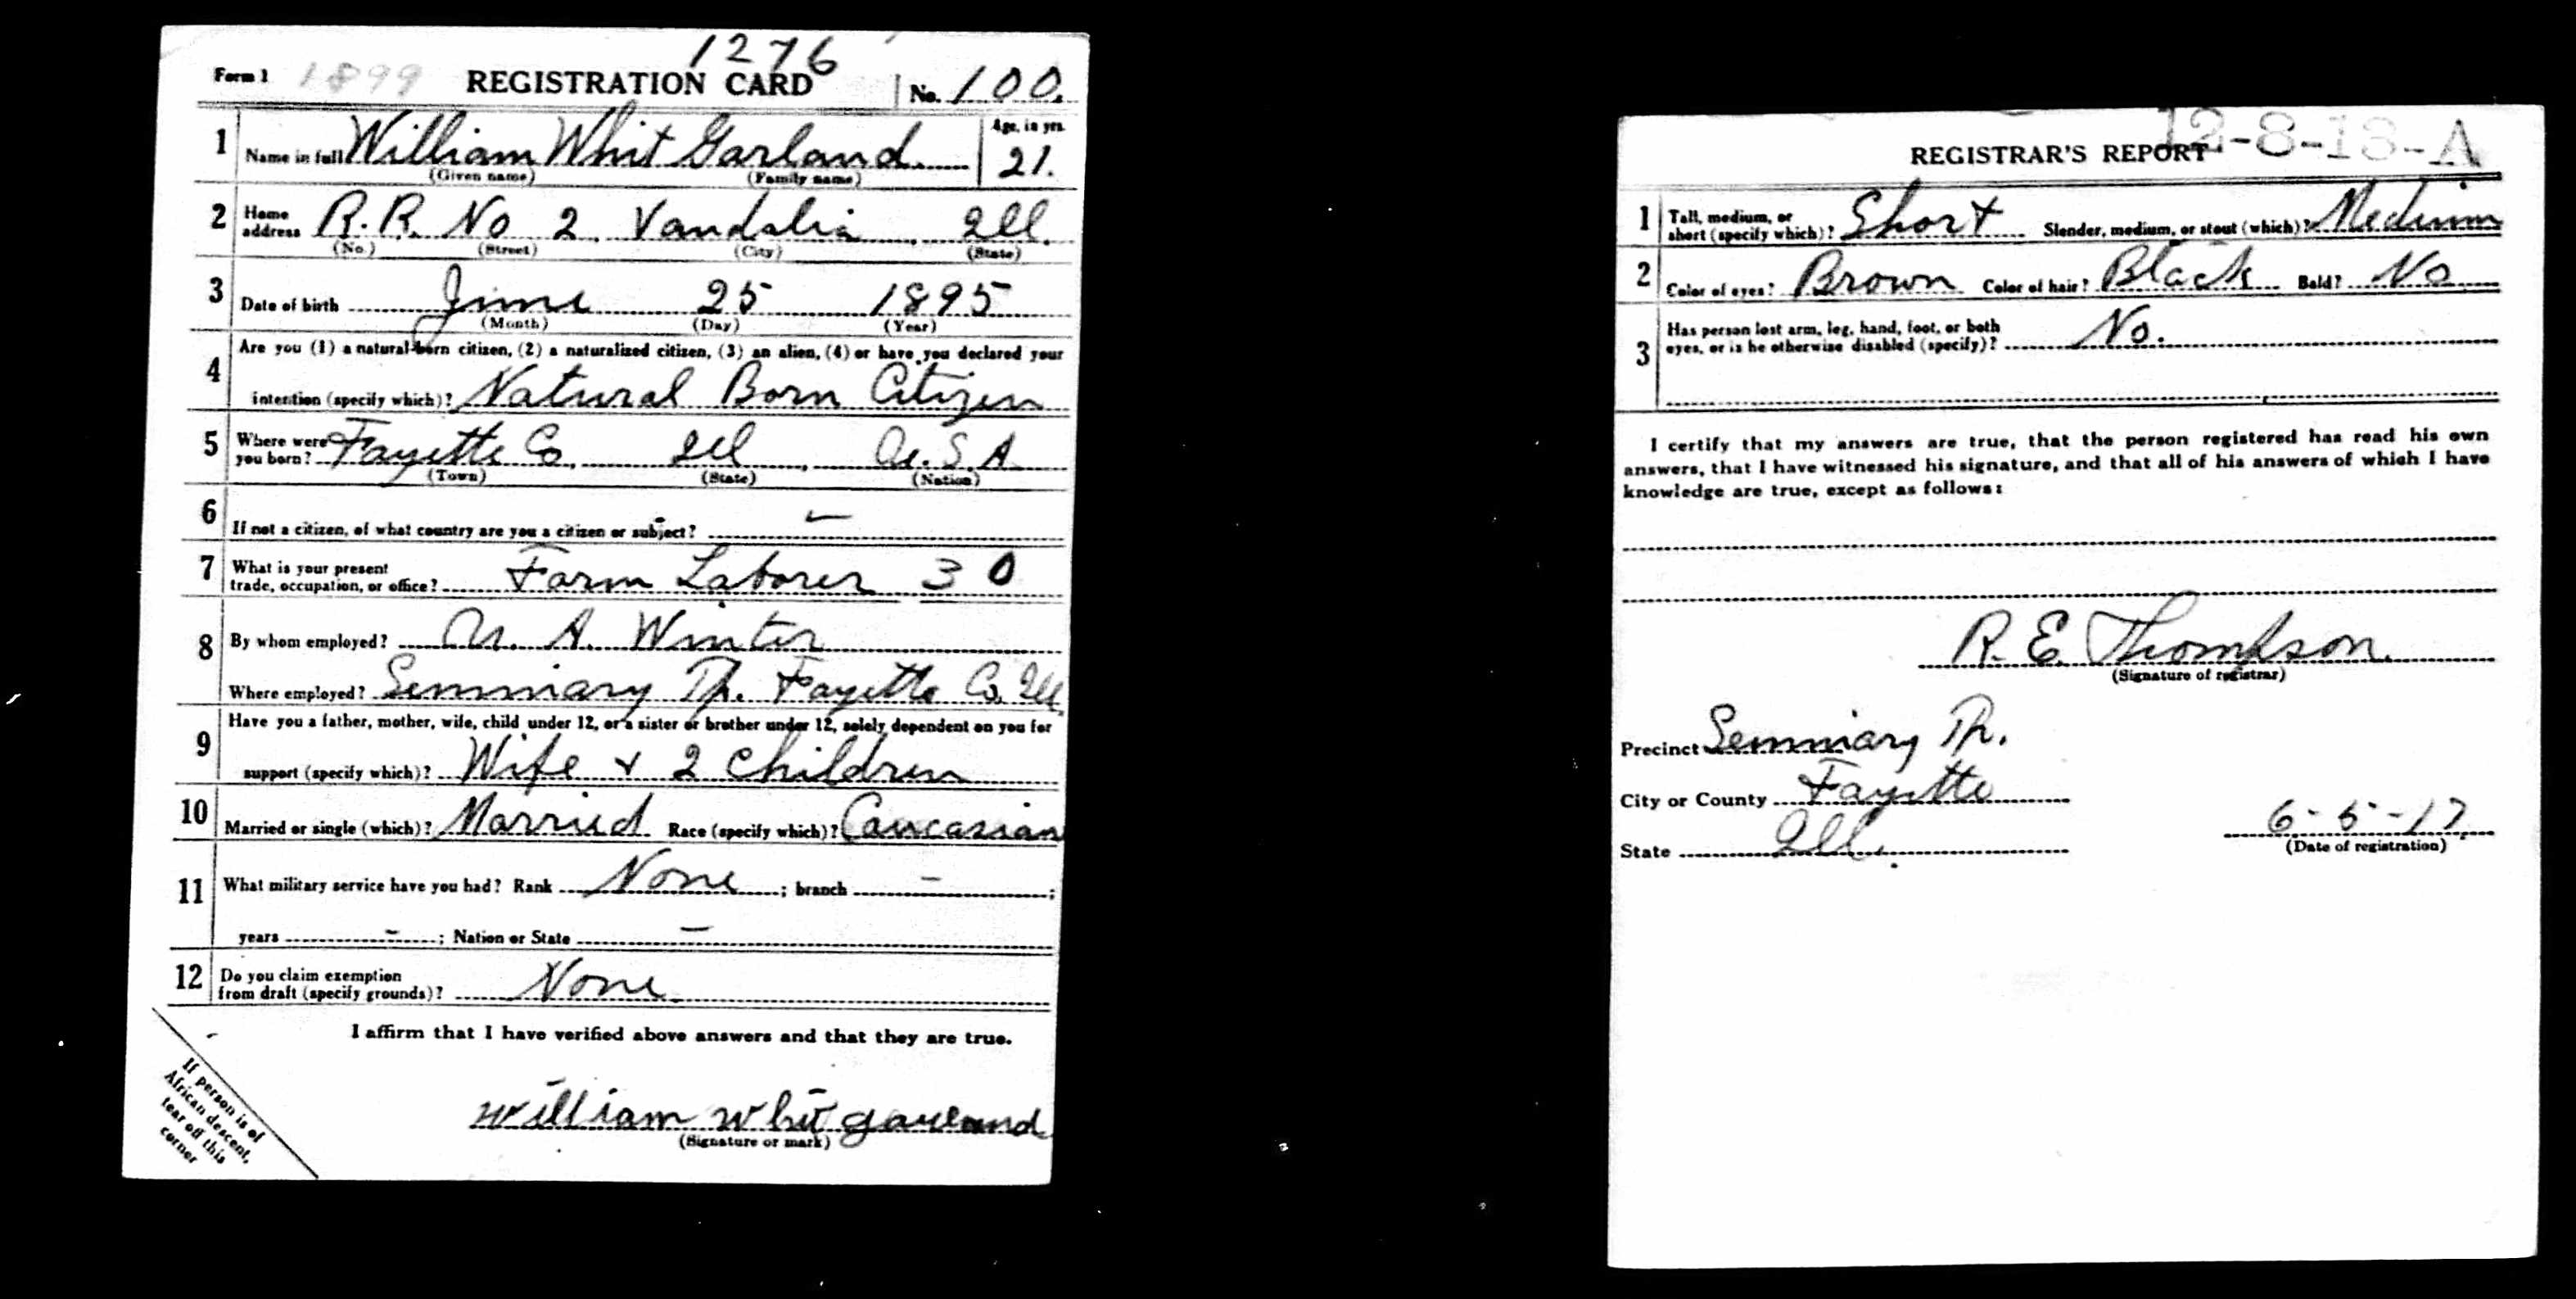 1276
Form 1 1899 REGISTRATION CARD No. 100.
1 Name in full William Whit Garland. Age, in yrs. 21.
(Given name) (Family name)
2 Home address R.R. No 2. Vandalia, Ill.
(No.) (Street) (City) (State)
3 Date of birth June 25 1895
(Month) (Day) (Year)
4 Are you (1) a natural-born citizen, (2) a naturalized citizen, (3) an alien, (4) or have you declared your
intention (specify which)? Natural Born Citizen
5 Where were you born? Fayette Co, Ill, U.S.A
(Town) (State) (Nation)
6 If not a citizen, of what country are you a citizen or subject? –
7 What is your present trade, occupation, or office? Farm Laborer 30
8 By whom employed? A. Winter
Where employed? Seminary Tp. Fayette Co. Ill.
9 Have you a father, mother, wife, child under 12, or a sister or brother under 12, solely dependent on you for
support (specify which)? Wife + 2 children
10 Married or single (which)? Married Race (specify which)? Caucasian
11 What military service have you had? Rank None; branch –;
years –; Nation or State –
12 Do you claim exemption from draft (specify grounds)? None
I affirm that I have verified above answers and that they are true.
William Whit garland
(Signature or mark)
If person is of
African descent,
tear off this
corner
12-8-13-A
REGISTRAR'S REPORT
1 Tall, medium, or short (specify which)? Short Slender, medium, or stout (which)? Medium
2 Color of eyes? Brown Color of hair? Black Bald? No
3 Has person lost arm, leg, hand, foot, or both
eyes, or is he otherwise disabled (specify)? No.
I certify that my answers are true, that the person registered has read his own
answers, that I have witnessed his signature, and that all of his answers of which I have
knowledge are true, except as follows:
R. E. Thompson.
(Signature of registrar)
Precinct Seminary Tp.
City or County Fayette
State Ill.
6-5-17
(Date of registration)